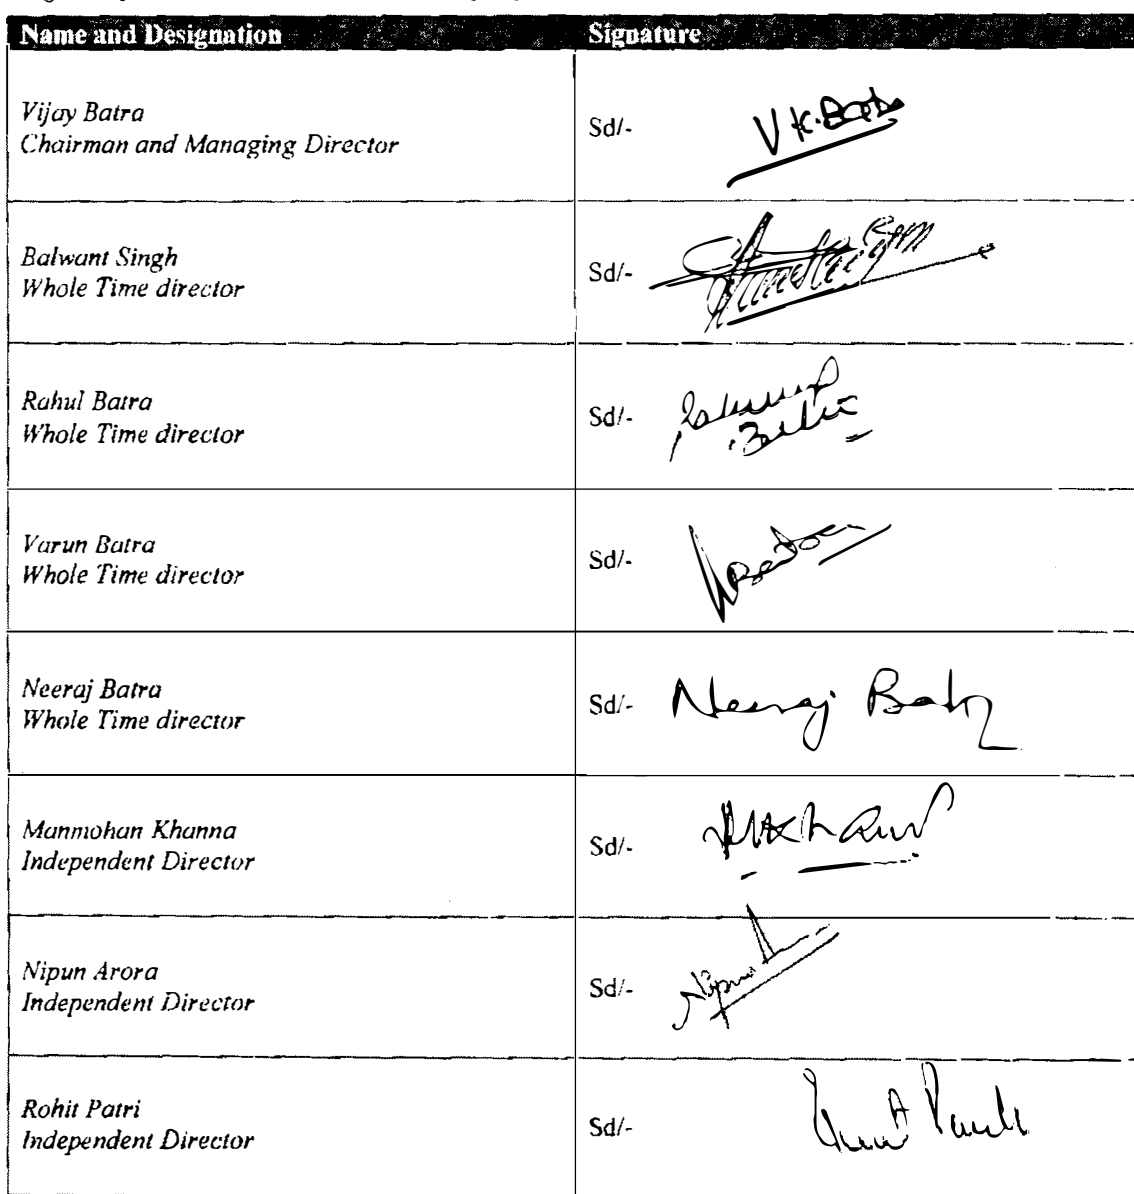 Name and Designation Signature
Vijay Batra
Chairman and Managing Director
Sd/- V K. Batra
Balwant Singh
Whole Time director
Sd/-
Rahul Batra
Whole Time director
Sd/-
Varun Batra
Whole Time director
Sd/-
Neeraj Batra
Whole Time director
Sd/- Neeraj Batra
Manmohan Khanna
Independent Director
Sd/-
Nipun Arora
Independent Director
Sd/- Nipun
Rohit Patri
Independent Director
Sd/-